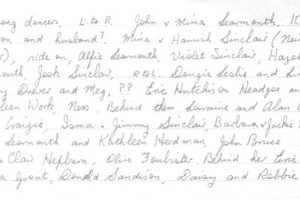 ong dancers, L. to R. John & Mina Learmonth, K
on and husband? Mina & Hamish Sinclair (Nei
), ride on, Alfie Learmonth, Violet Sinclair, Hazel
onth, Jock Sinclair, R to L. Dougie Leslie and hu
y Drever and Meg. ?? Eric Hutchison Headgoe an
leen Work Ness. Behind them Lorraine and Alan
Craigie, Isma & Jimmy Sinclair, Barbara & Jackie
Learmonth and Kathleen Herdman, John Bruce
a Clair Hepburn, Olive Foubister. Behind her Eric
a Grout, Donald Sandison, Davay and Robbie